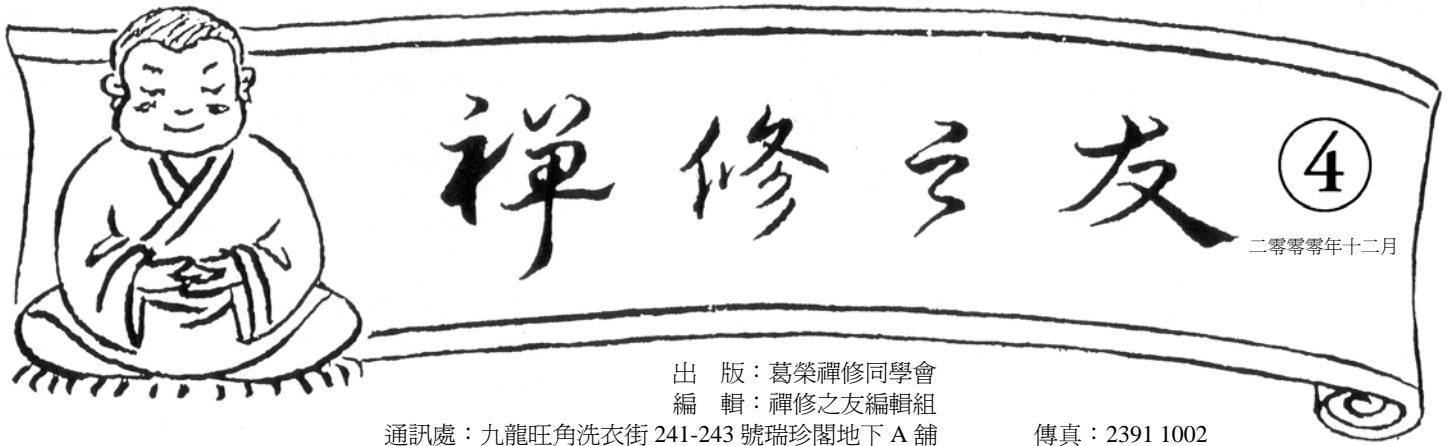 禪修之友 ④
二零零零年十二月
出　版：葛榮禪修同學會
編　輯：禪修之友編輯組
通訊處：九龍旺角洗衣街 241-243 號瑞珍閣地下 A 舖　　傳真：2391 1002